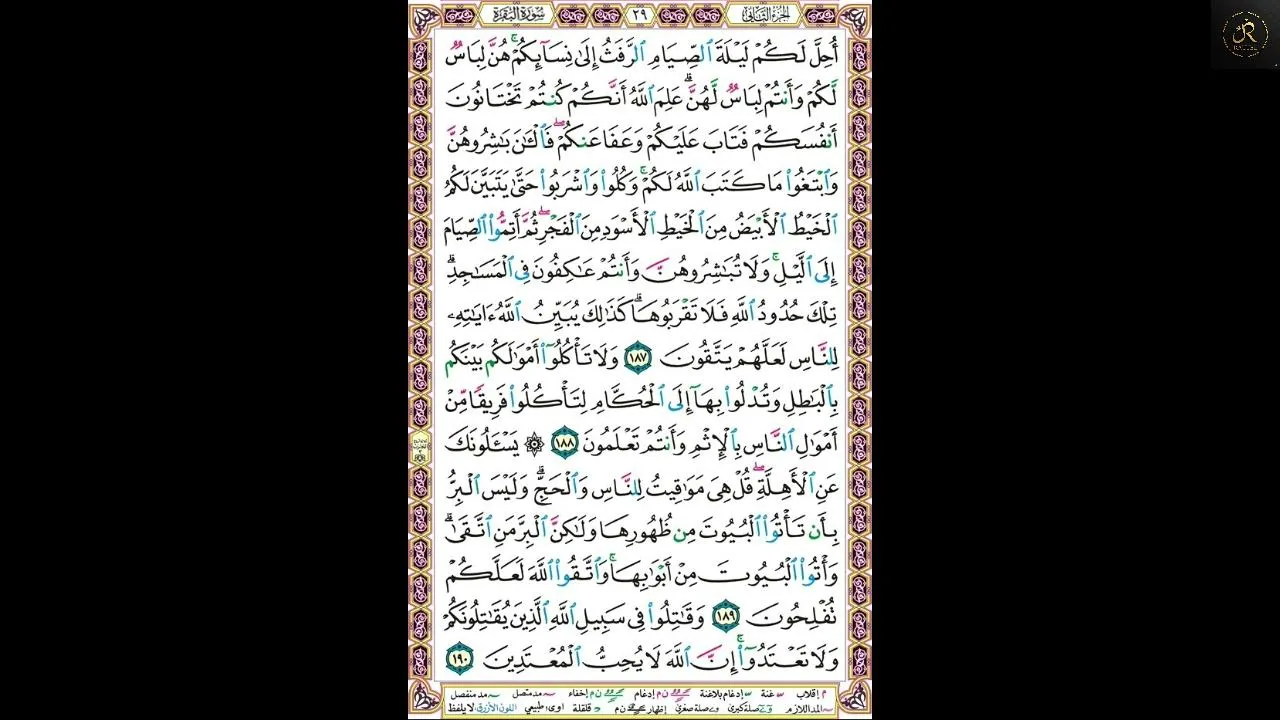 الجزء الثاني ٢٩ سورة البقرة
أُحِلَّ لَكُمْ لَيْلَةَ ٱلصِّيَامِ ٱلرَّفَثُ إِلَىٰ نِسَآئِكُمْۚ هُنَّ لِبَاسٌ
لَّكُمْ وَأَنتُمْ لِبَاسٌ لَّهُنَّۗ عَلِمَ ٱللَّهُ أَنَّكُمْ كُنتُمْ تَخْتَانُونَ
أَنفُسَكُمْ فَتَابَ عَلَيْكُمْ وَعَفَا عَنكُمْۖ فَٱلْـَٰٔنَ بَـٰشِرُوهُنَّ
وَٱبْتَغُوا۟ مَا كَتَبَ ٱللَّهُ لَكُمْۚ وَكُلُوا۟ وَٱشْرَبُوا۟ حَتَّىٰ يَتَبَيَّنَ لَكُمُ
ٱلْخَيْطُ ٱلْأَبْيَضُ مِنَ ٱلْخَيْطِ ٱلْأَسْوَدِ مِنَ ٱلْفَجْرِۖ ثُمَّ أَتِمُّوا۟ ٱلصِّيَامَ
إِلَى ٱلَّيْلِۚ وَلَا تُبَـٰشِرُوهُنَّ وَأَنتُمْ عَـٰكِفُونَ فِى ٱلْمَسَـٰجِدِۗ
تِلْكَ حُدُودُ ٱللَّهِ فَلَا تَقْرَبُوهَاۗ كَذَٰلِكَ يُبَيِّنُ ٱللَّهُ ءَايَـٰتِهِۦ
لِلنَّاسِ لَعَلَّهُمْ يَتَّقُونَ ١٨٧ وَلَا تَأْكُلُوٓا۟ أَمْوَٰلَكُم بَيْنَكُم
بِٱلْبَـٰطِلِ وَتُدْلُوا۟ بِهَآ إِلَى ٱلْحُكَّامِ لِتَأْكُلُوا۟ فَرِيقًا مِّنْ
أَمْوَٰلِ ٱلنَّاسِ بِٱلْإِثْمِ وَأَنتُمْ تَعْلَمُونَ ١٨٨ ۞ يَسْـَٔلُونَكَ
عَنِ ٱلْأَهِلَّةِۖ قُلْ هِىَ مَوَٰقِيتُ لِلنَّاسِ وَٱلْحَجِّۗ وَلَيْسَ ٱلْبِرُّ
بِأَن تَأْتُوا۟ ٱلْبُيُوتَ مِن ظُهُورِهَا وَلَـٰكِنَّ ٱلْبِرَّ مَنِ ٱتَّقَىٰۗ
وَأْتُوا۟ ٱلْبُيُوتَ مِنْ أَبْوَٰبِهَاۚ وَٱتَّقُوا۟ ٱللَّهَ لَعَلَّكُمْ
تُفْلِحُونَ ١٨٩ وَقَـٰتِلُوا۟ فِى سَبِيلِ ٱللَّهِ ٱلَّذِينَ يُقَـٰتِلُونَكُمْ
وَلَا تَعْتَدُوٓا۟ۚ إِنَّ ٱللَّهَ لَا يُحِبُّ ٱلْمُعْتَدِينَ ١٩٠
م إقلاب غنة إدغام بلاغنة ن م إدغام ن م إخفاء مد متصل مد منفصل
المد اللازم صلة كبرى صلة صغرى إظهار ن م قلقلة اوى: طبيعي اللون الأزرق لا يلفظ